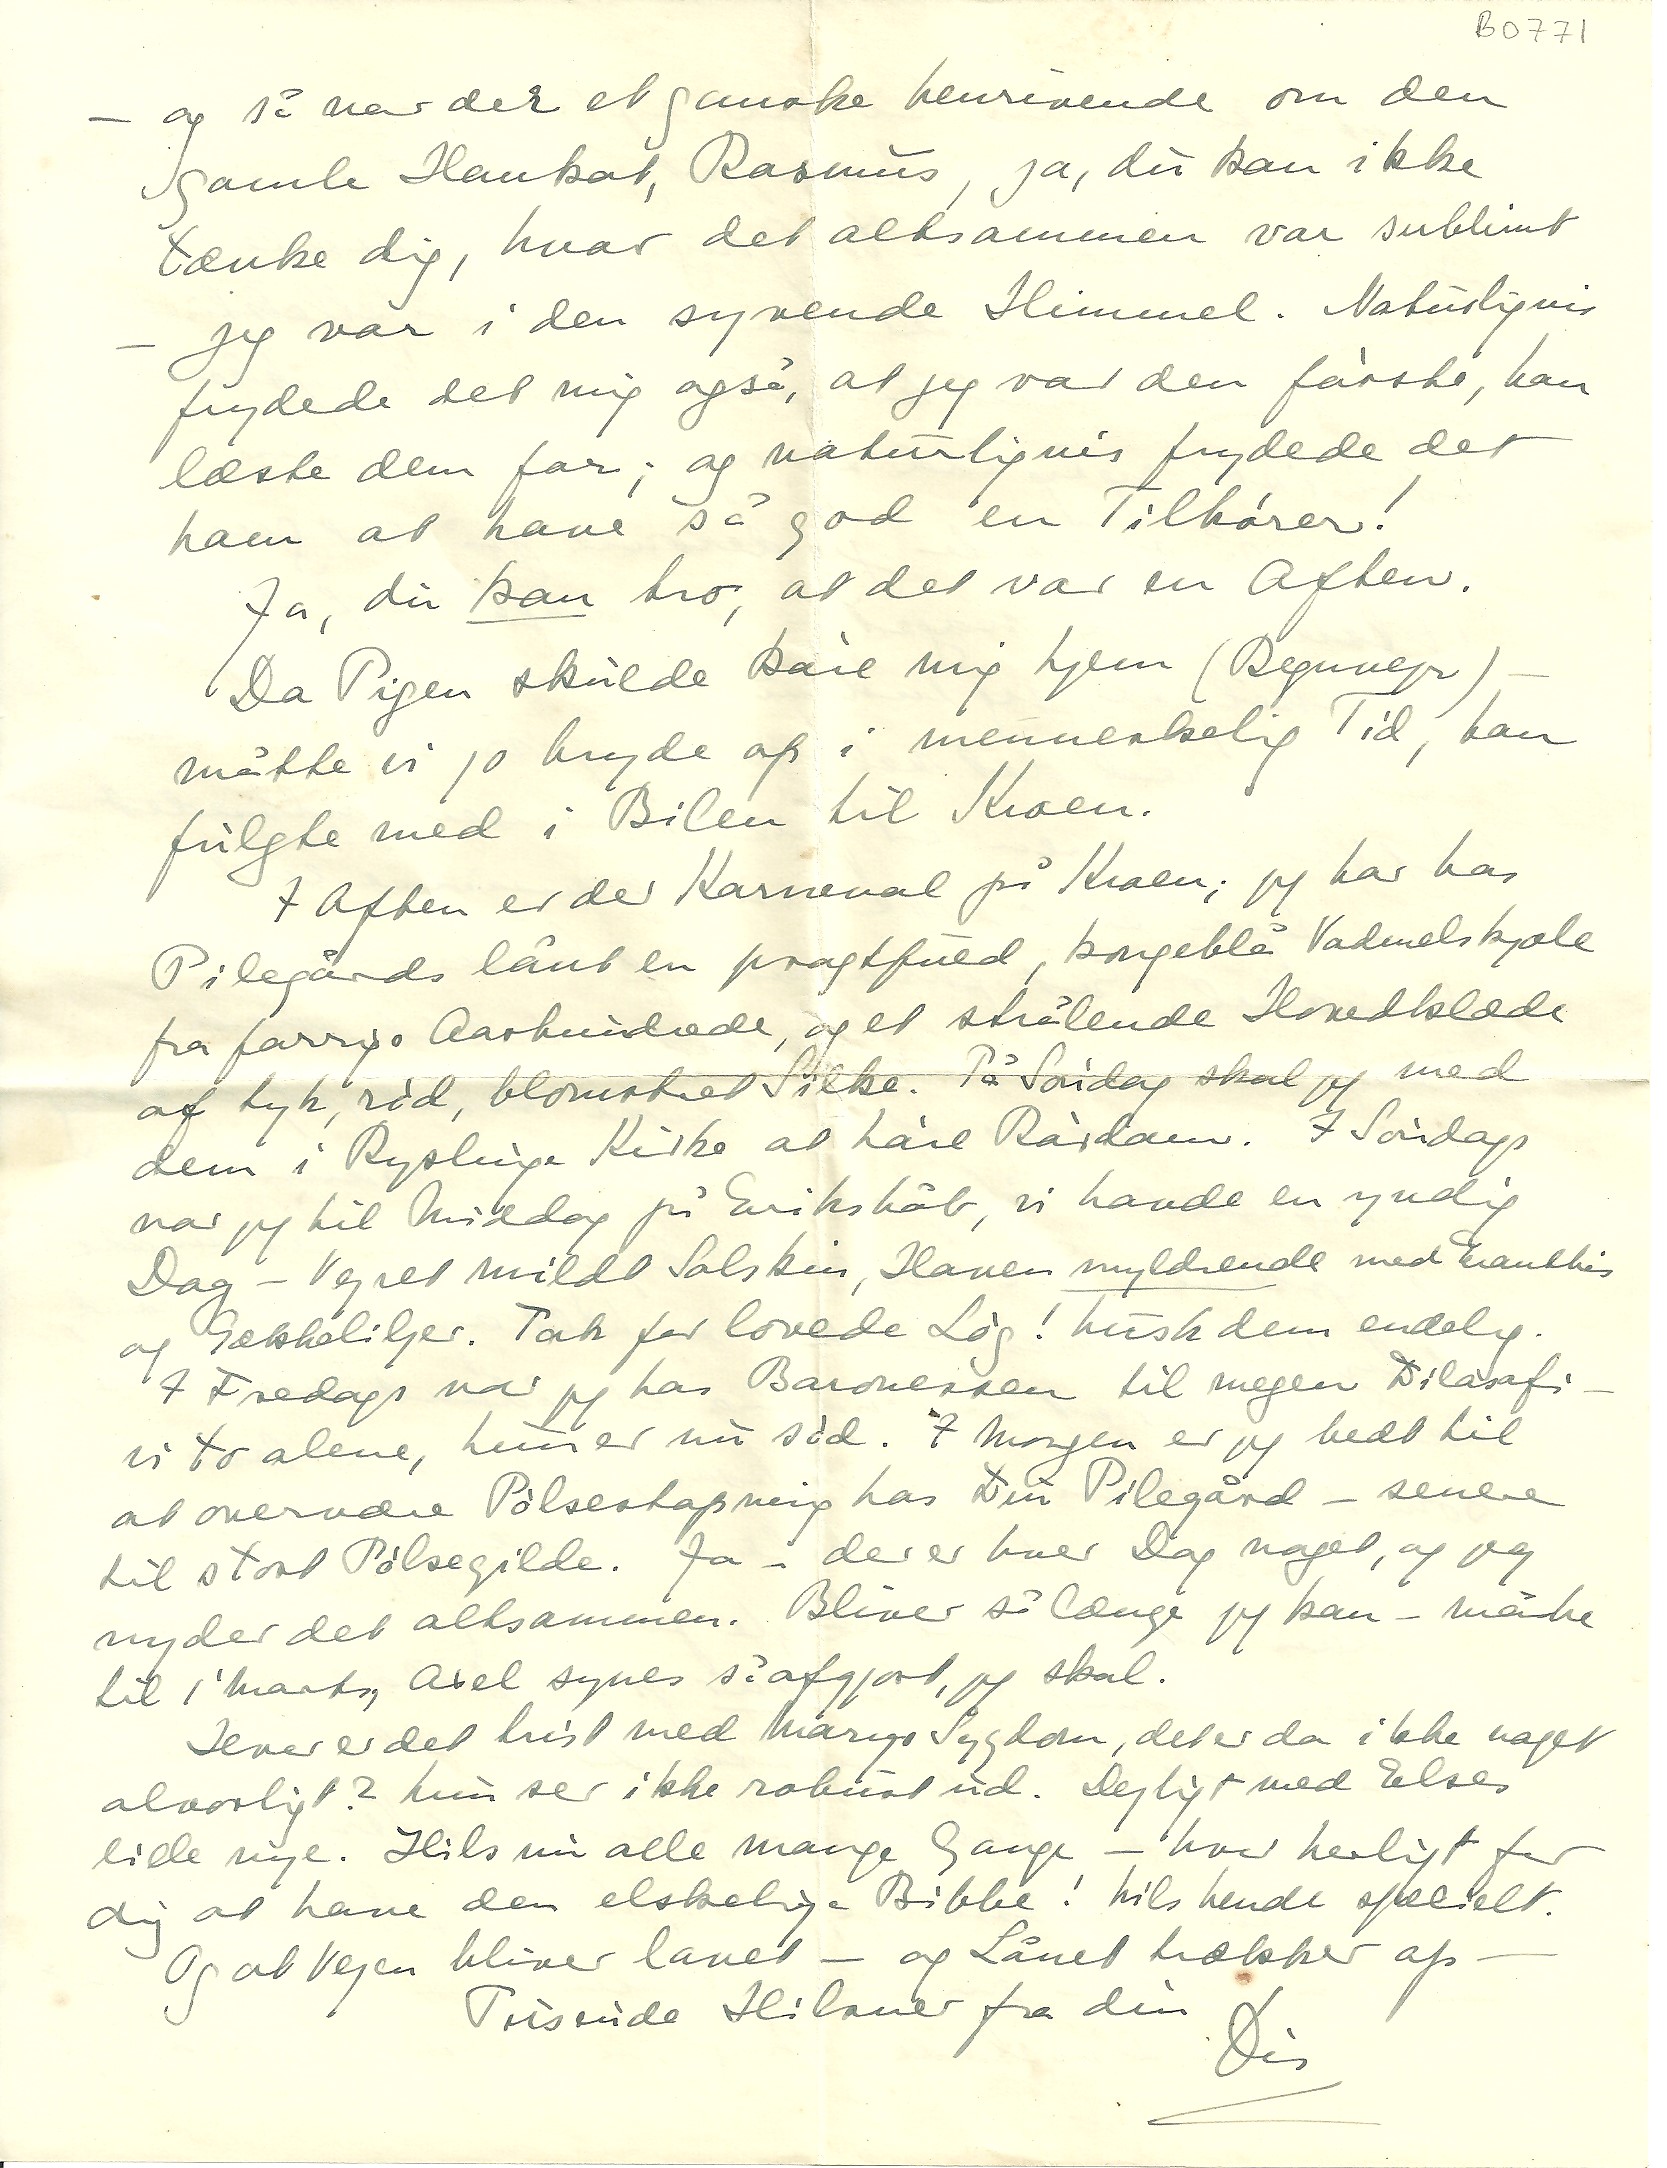 B0771
– og så var der et ganske henrivende om den
gamle Hankat, Rasmus, ja, du kan ikke
tænke dig, hvor det altsammen var sublimt
– jeg var i den syvende Himmel. Naturligvis
frydede det mig også, at jeg var den første, han
læste dem for; og naturligvis frydede det
ham at have så god en Tilhører!
Ja, du kan tro, at det var en Aften.
Da Pigen skulde køre mig hjem (Regnvejr) –
måtte vi jo bryde op i menneskelig Tid, han
fulgte med i Bilen til Kroen.
I Aften er der Karneval på Kroen; jeg har hos
Pilegårds lånt en pragtfuld, kongeblå Vadmelskjole
fra forrige Aarhundrede, og et strålende Hovedklæde
af tyk, rød, blomstret Silke. På Søndag skal jeg med
dem i Ryslinge Kirke at høre Rørdam. I Søndags
var jeg til Middag på Erikshåb, vi havde en yndig
Dag – Vejret mildt Solskin, Haven myldrende med Erantkis
og Gækkeliljer. Tak for lovede Løg! husk dem endelig.
I Fredags var jeg hos Baronessen til megen Filosofi –
vi to alene, hun er nu sød. I Morgen er jeg bedt til
at overvære Pølsestopning hos Fru Pilegård – senere
til stort Pølsegilde. Ja – der er hver Dag noget, og jeg
nyder det altsammen. Bliver så længe jeg kan – måske
til 1' Marts, Axel synes så afgjort, jeg skal.
Hvor er det trist med Marys Sygdom, det er da ikke noget
alvorligt? hun ser ikke robust ud. Dejligt med Elses
lille nye. Hils nu alle mange Gange – hvor herligt for
dig at have den elskelige Bibbe! hils hende specielt.
Og at Vejen bliver lavet – og Lånet trækker op –
Tusinde Hilsner fra din
Dis